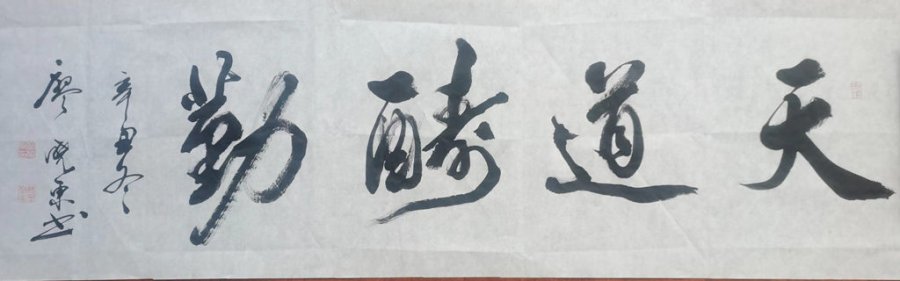 天道酬勤
辛丑冬
廖晓东书